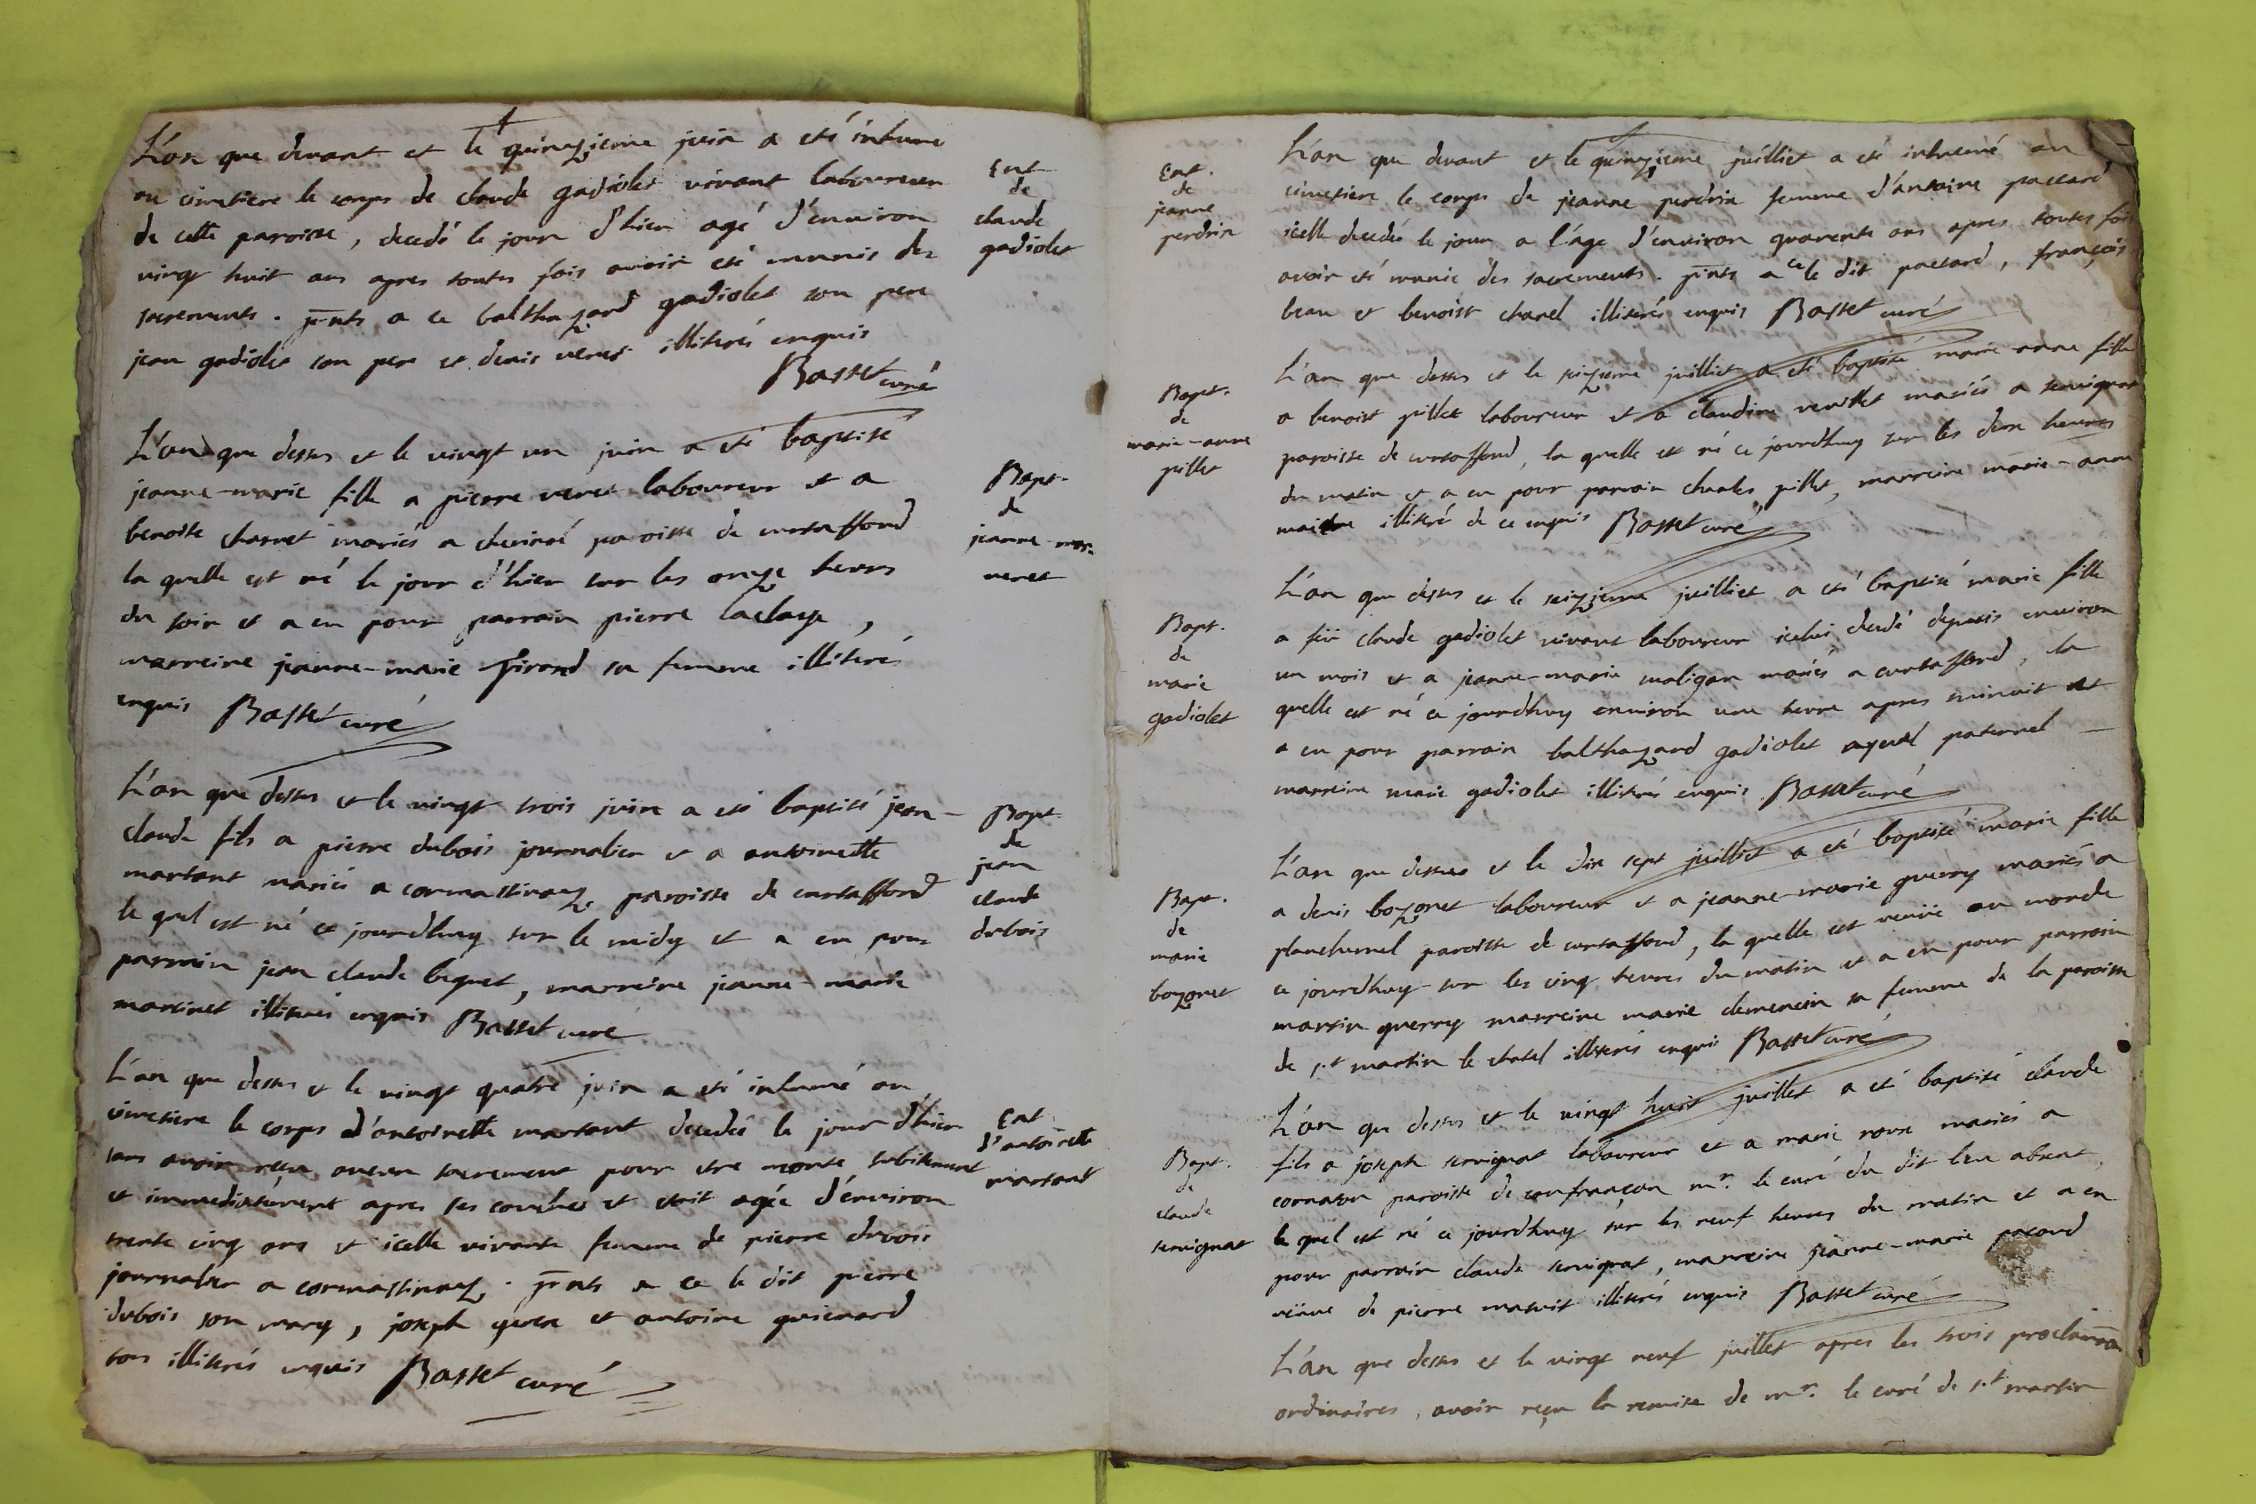 L'an que devant et le quinzieme juin a eté inhumé
au cimetiere le corps de claude gadiolet vivant laboureur
de cette paroisse, decedé le jour d'hier agé d'environ
vingt huit ans apres toutes fois avoir eté munis des
sacrements. pnts a ce balthazard gadiolet son pere
jean gadiolet son per et denis veret illiterés enquis
Basset curé
Ent
de
claude
gadiolet
L'an que dessus et le vingt un juin a eté baptisé
jeanne-marie fille a pierre veret laboureur et a
benoite charvet mariés a paroisse de curtaffond
la quelle est né le jour d'hier sur les onze heures
du soir et a eu pour parrain pierre laclaye,
marreine jeanne-marie Girard sa femme illiterés
enquis Basset curé
Bapt.
de
jeanne-mar.
veret
L'an que dessus et le vingt trois juin a eté baptisé jean-
claude fils a pierre dubois journalier et a antoinette
martant mariés a cormastinaz paroisse de curtaffond
le quel est né ce jourdhuy sur le midy et a eu pour
parrain jean claude bequet, marreine jeanne-marie
martinet illiterés enquis Basset curé
Bapt.
de
jean
claude
dubois
L'an que dessus et le vingt quatre juin a eté inhumé au
cimetiere le corps d'antoinette martant decedée le jour d'hier
sans avoir reçu aucun sacrement pour etre morte subitement
et immediatement apres ses couches et etoit agée d'environ
trente cinq ans et icelle vivante femme de pierre dubois
journalier a cormastinaz. pnts a ce le dit pierre
dubois son mary, joseph et antoine guienard
tous illiterés enquis Basset curé
Ent
d'antoinette
martant
Ent.
de
jeanne
perdrix
L'an que devant et le quinzieme juilliet a eté inhumé au
cimetiere le corps de jeanne perdrix femme d'antoine paccard
icelle decedée le jour a l'age d'environ quarente ans apres toutes fois
avoir eté munie des sacrements. pnts a ce le dit paccard, françois
beau et benoist charel illiterés enquis Basset curé
Bapt.
de
marie-anne
pillet
L'an que dessus et le seizieme juilliet a eté baptisé marie anne fille
a benoist pillet laboureur et a claudine veuillet mariés a servignat
paroisse de curtaffond, la quelle est né ce jourdhuy sur les deux heures
du matin et a eu pour parrain charles pillet, marreine marie-anne
illiterés de ce enquis Basset curé
Bapt.
de
marie
gadiolet
L'an que dessus et le seizieme juilliet a eté baptisé marie fille
a feü claude gadiolet vivant laboureur icelui decedé depuis environ
un mois et a jeanne-marie maligan mariés a curtaffond, la
quelle est né ce jourdhuy environ une heure apres minuit et
a eu pour parrain balthazard gadiolet ayeul paternel
marreine marie gadiolet illiterés enquis Basset curé
Bapt.
de
marie
bozonet
L'an que dessus et le dix sept juilliet a eté baptisé marie fille
a denis bozonet laboureur et a jeanne-marie guerry mariés a
planchemel paroisse de curtaffond, la quelle est venüe au monde
ce jourdhuy sur les cinq heures du matin et a eu pour parrain
martin guerry marreine marie clemencin sa femme de la paroisse
de st martin le chatel illiterés enquis Basset curé
Bapt.
de
claude
servignat
L'an que dessus et le vingt huit juillet a eté baptisé claude
fils a joseph servignat laboureur et a marie roux mariés a
cornaton paroisse de confrançon mr. le curé du dit lieu absent,
le quel est né ce jourdhuy sur les neuf heures du matin et a eu
pour parrain claude servignat, marreine jeanne-marie pacoud
veüve de pierre matuit illiterés enquis Basset curé
L'an que dessus et le vingt neuf juillet apres les trois proclamaon
ordinaires, avoir reçu la remise de mr. le curé de st martin